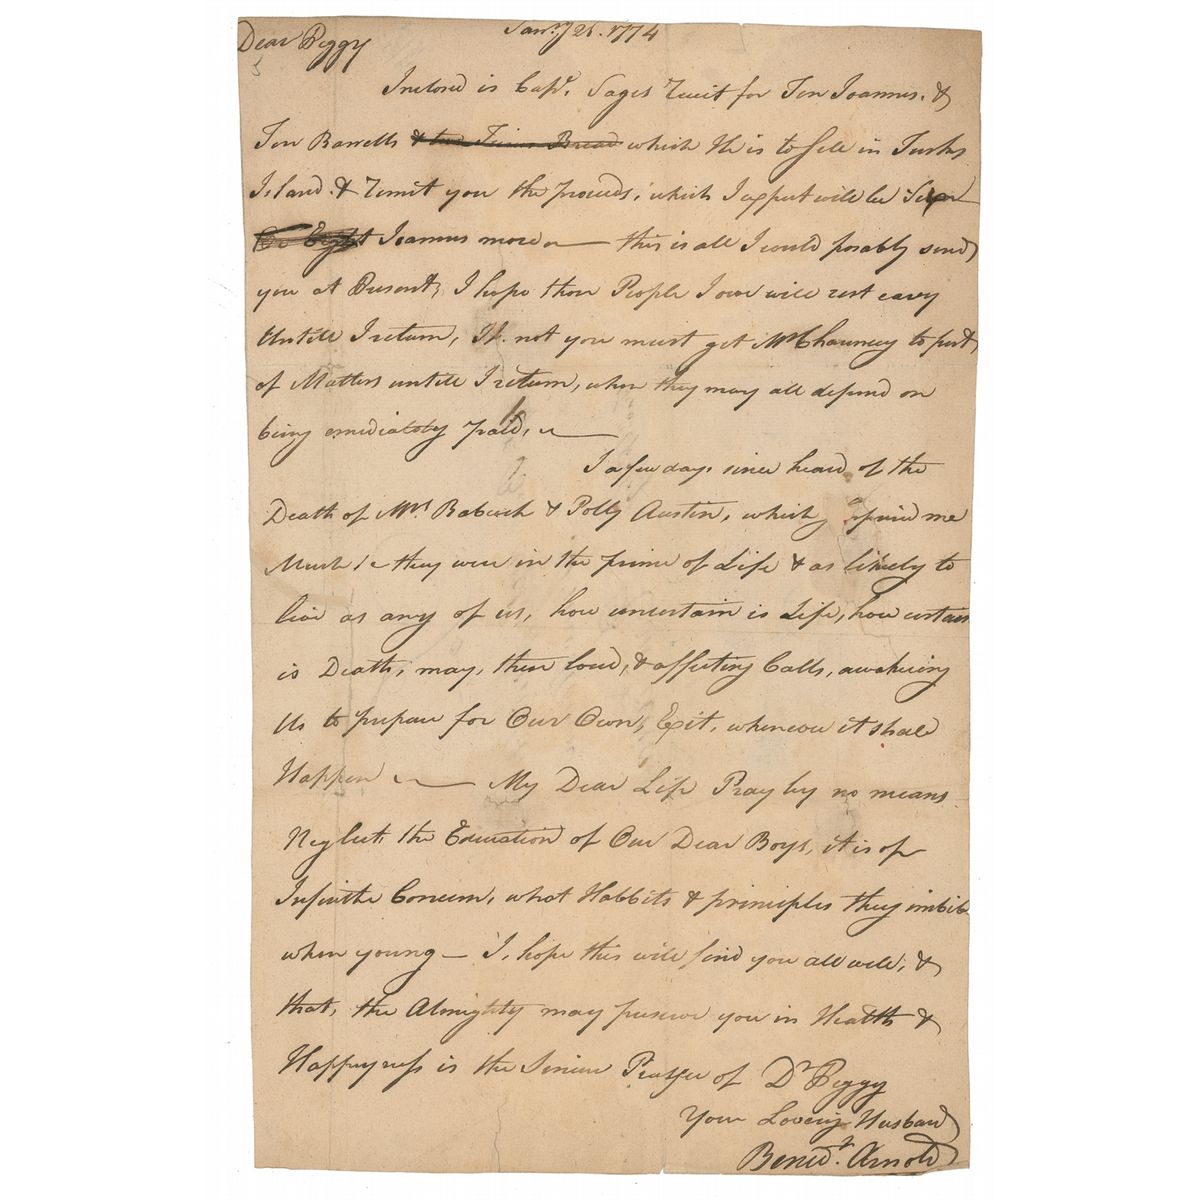 Jan.ry 21. 1774
Dear Peggy
Inclosed is Capt. Sages Rec.it for Ten Joannes. &
Ten Barrells & two Bread which He is to Sell in Turks
Island. & Remit you the proceeds, which I expect will be
or Eight Joannes more — this is all I could possably send
you at Present, I hope those People I owe will rest easy
Untill I return, If not you must get Mr Chauncey to put
of Matters untill I return, when they may all depend on
being emediately paid, —
I a few days since heard of the
Death of Mrs Babcock & Polly Austin, which me
Much, they were in the prime of Life & as likely to
live as any of us, how uncertain is Life, how certain
is Death; may, these loud, & affecting Calls, awakening
Us to prepair for Our Own, Exit, whenever it shall
Happen — My Dear Life Pray by no means
Neglect the Education of Our Dear Boys, it is of
Infinite Concern, what Habbits & principles they imbibe
when young — I, hope this will find you all well, &
that, the Almighty may preserve you in Health &
Happyness is the Sincere Prayer of Dr Peggy
Your Loveing Husband
Bened.t Arnold